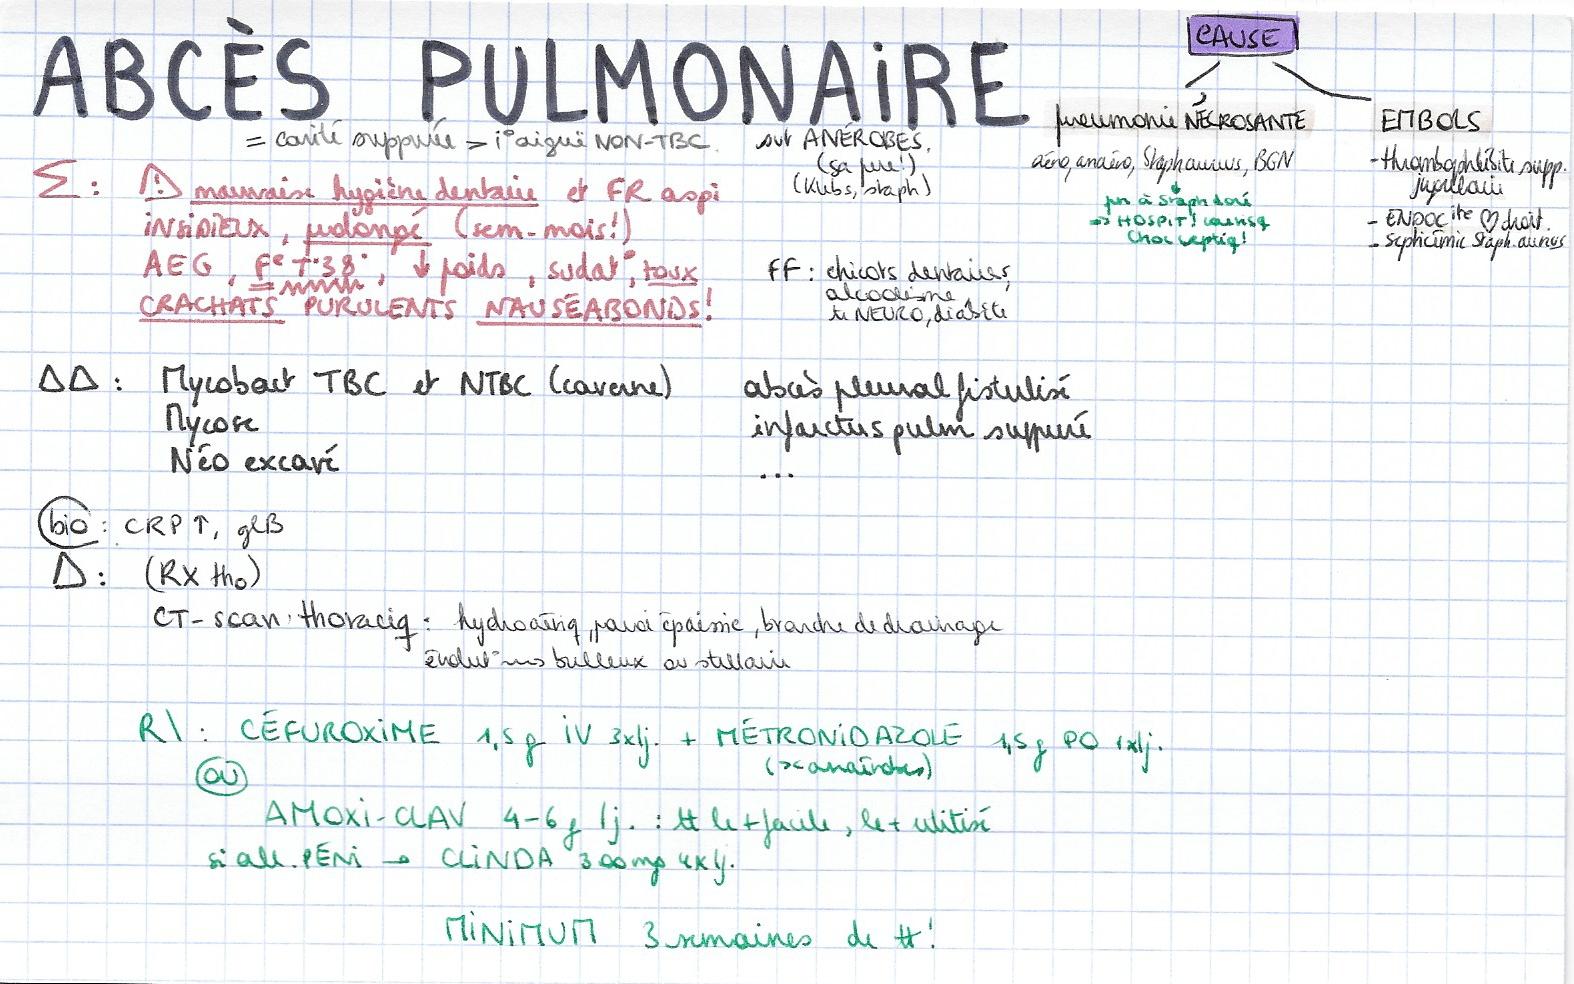 CAUSE
ABCÈS PULMONAIRE
= cavité suppurée > i° aiguë NON-TBC. surt ANÉROBES.
(sa pue!)
(Klebs, staph)
pneumonie NÉCROSANTE
aéro, anaéro, Staph aureus, BGN
↓
pn à Staph doré
⇒ HOSPIT! car risq
choc septiq!
EMBOLS
- thrombophlébite supp.
jugulaire
- ENDOCite ♡ droit.
- Septicémie Staph. aureus
Σ: ⚠ mauvaise hygiène dentaire et FR aspi
INSIDIEUX, prolongé (sem-mois!)
AEG, Fe T° 38°, ↓ poids, sudat°, toux
CRACHATS PURULENTS NAUSÉABONDS!
FF: chicots dentaires,
alcoolisme,
NEURO, diabète
ΔΔ: Mycobact TBC et NTBC (caverne)
Mycose
Néo excavé
abcès pleural fistulisé
infarctus pulm suppuré
...
bio: CRP↑, glB
Δ: (RX tho)
CT-scan thoraciq: hydroaériq, paroi épaissie, branche de drainage
bulleux ou stellaire
R\: CÉFUROXIME 1,5g IV 3x/j. + MÉTRONIDAZOLE 1,5g PO 1x/j.
(>< anaérobes)
OU
AMOXI-CLAV 4-6g /j.: tt le + facile, le + utilisé
si all. PÉNI → CLINDA 300mg 4x/j.
MINIMUM 3 semaines de tt!